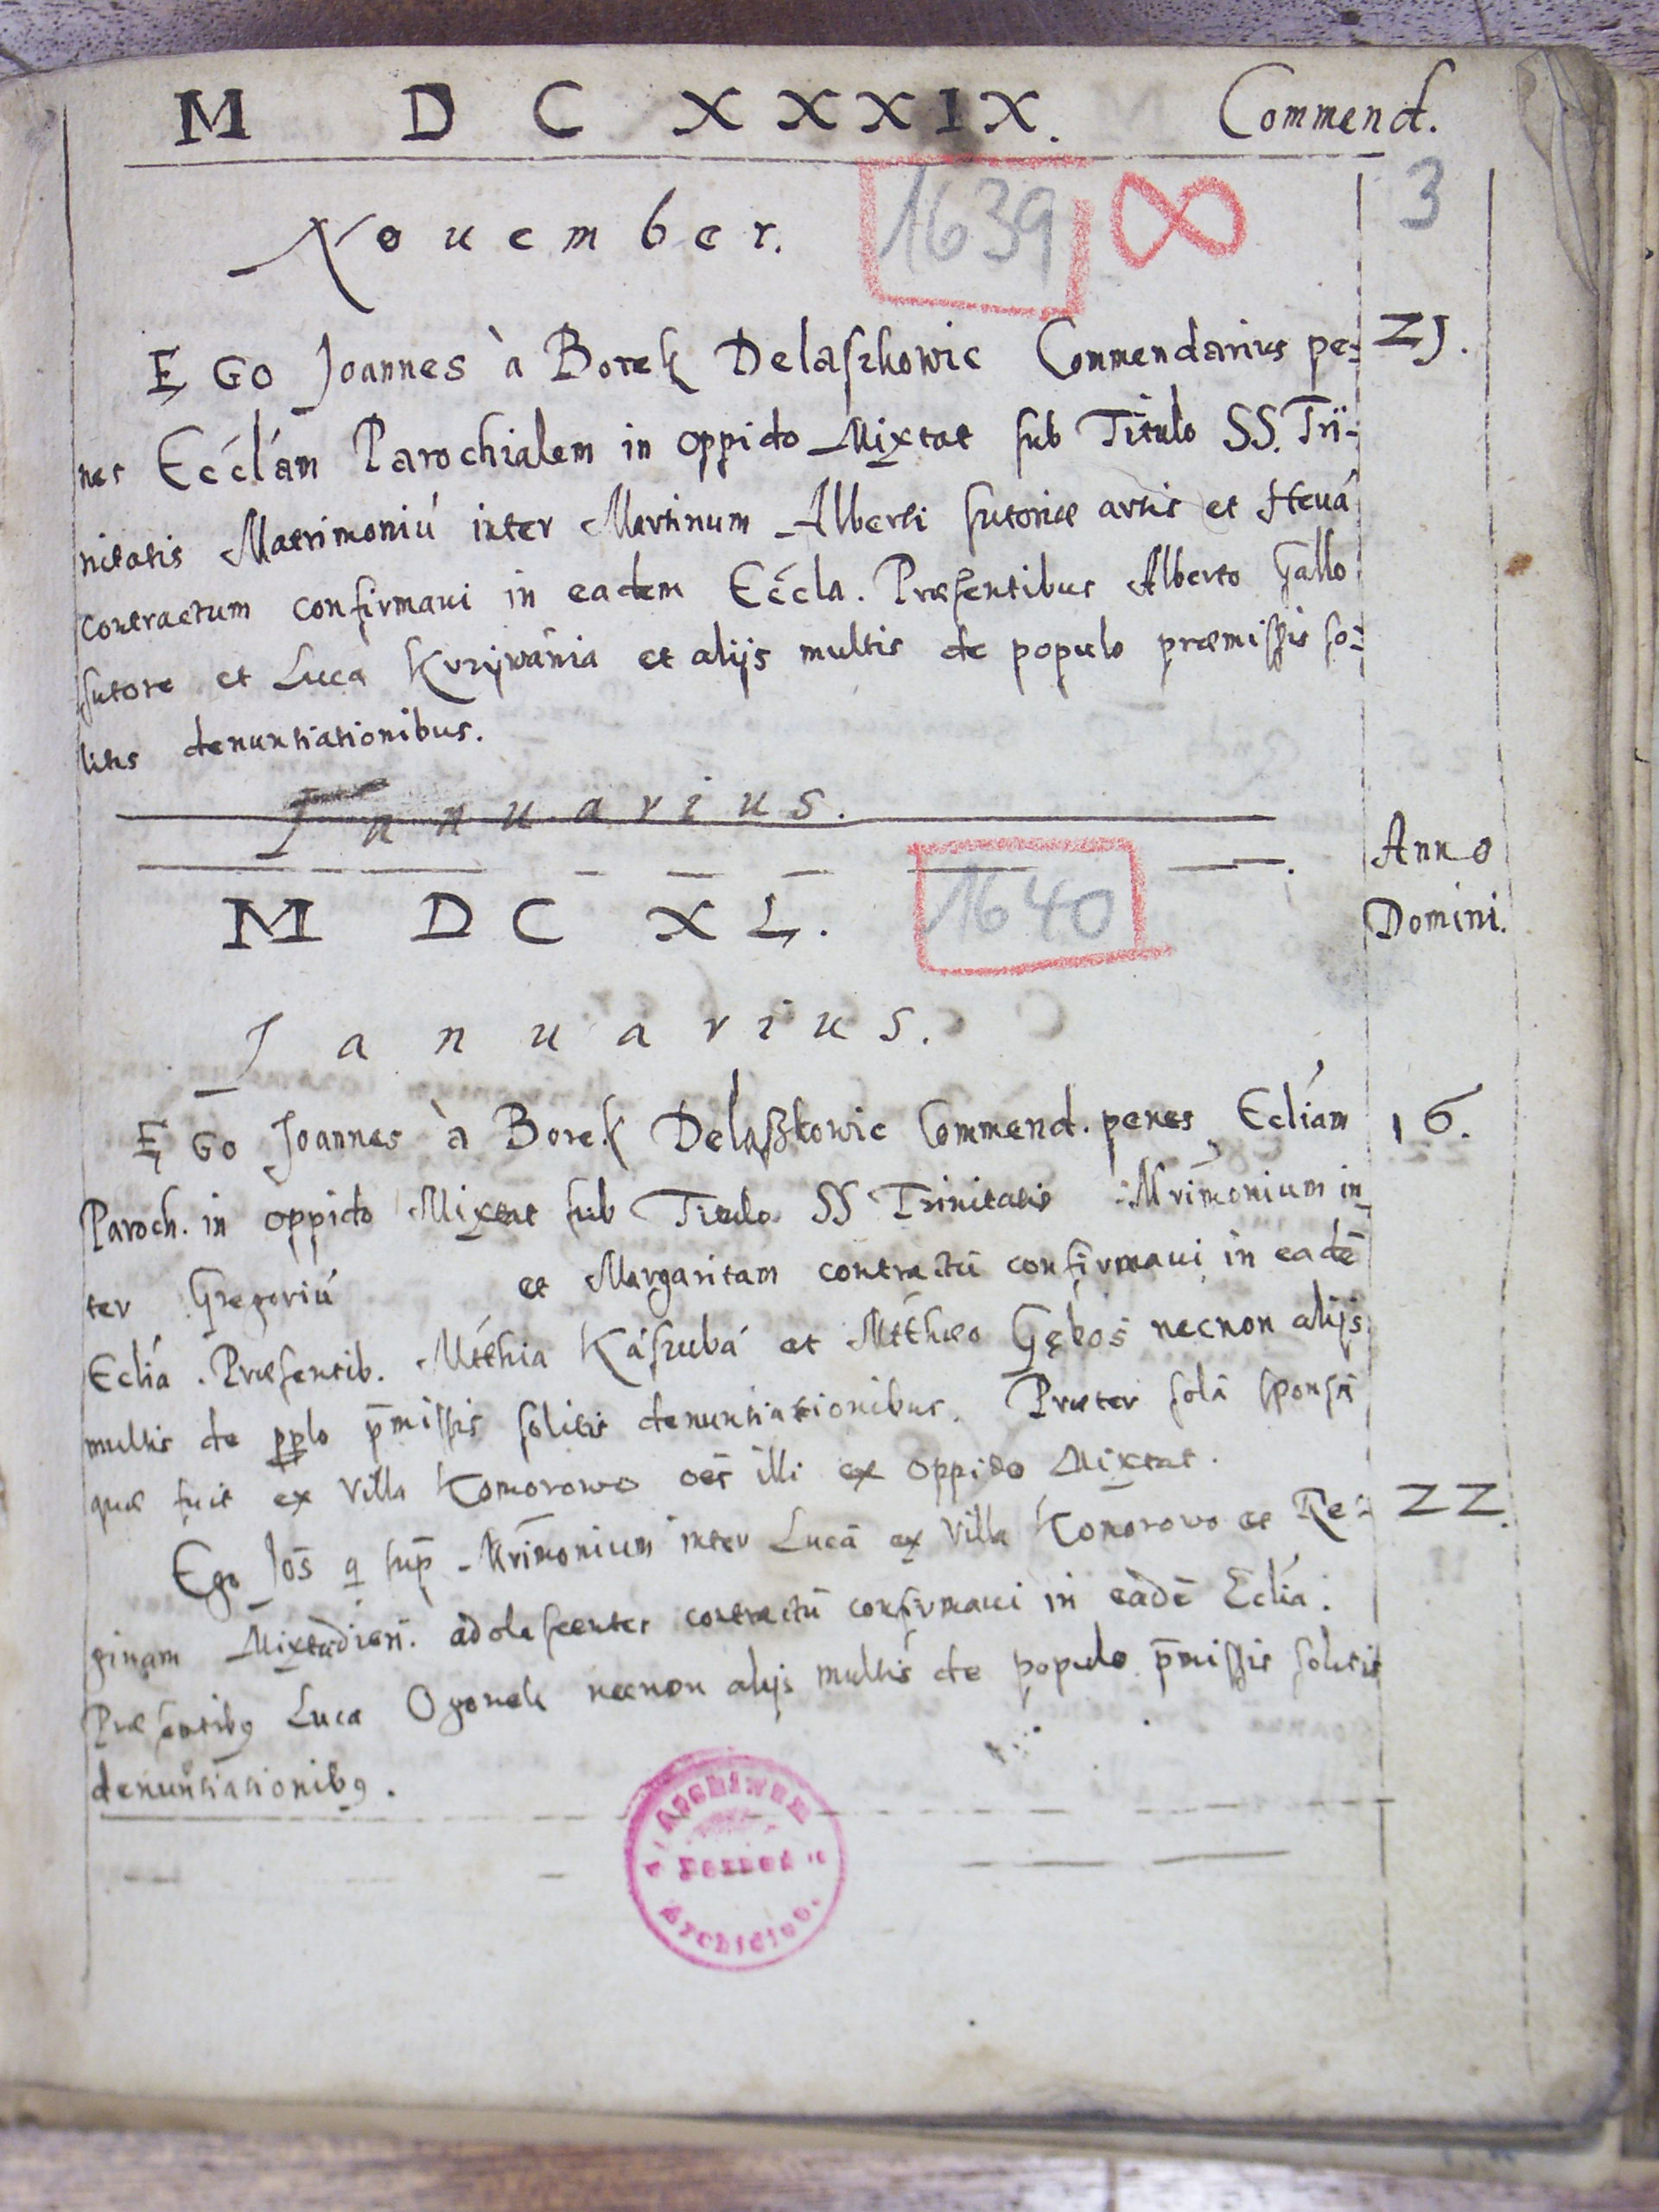 M D C XXXIX. Commend.
Nouember. 1639 3
E GO Joannes à Borek Delaszkowic Commendarius pe- 21.
nes Ecclám Parochialem in oppido Mixtat sub Titulo SS. Tri-
nitatis Matrimoniú inter Martinum Alberti sutoriæ artis et Heuá
contractum confirmaui in eadem Eccla. Præsentibus Alberto Gallo
sutore et Luca Kurywánia et alijs multis de populo præmissis so-
litis denuntiationibus.
Januarius.
Anno
M D C X L. 1640 Domini.
Januarius.
E GO Joannes à Borek Delaszkowic Commend. penes Ecliám 16.
Paroch. in oppido Mixtat sub Titulo SS Trinitatis Mrimonium in-
ter Gregoriú et Margaritam contractū confirmaui in eadē
Eclia. Præsentib. Mtthia Kászubá et Mtthæo Gękos necnon alijs
multis de pplo p̄missis solitis denuntiationibus. Præter solā sponsā
quæ fuit ex Villa Komorowo oēs illi ex oppido Mixtat.
Ego Jos̄ q sup̄ Mrimonium inter Lucā ex Villa Komorowo et Re- 22.
ginam Mixtadien. adolescentes contractū confirmaui in eadē Eclia.
Præsentibꝰ Luca Ogonek necnon alijs multis de populo p̄missis solitis
denuntiationibꝰ.
Archiwum
Archidiec.